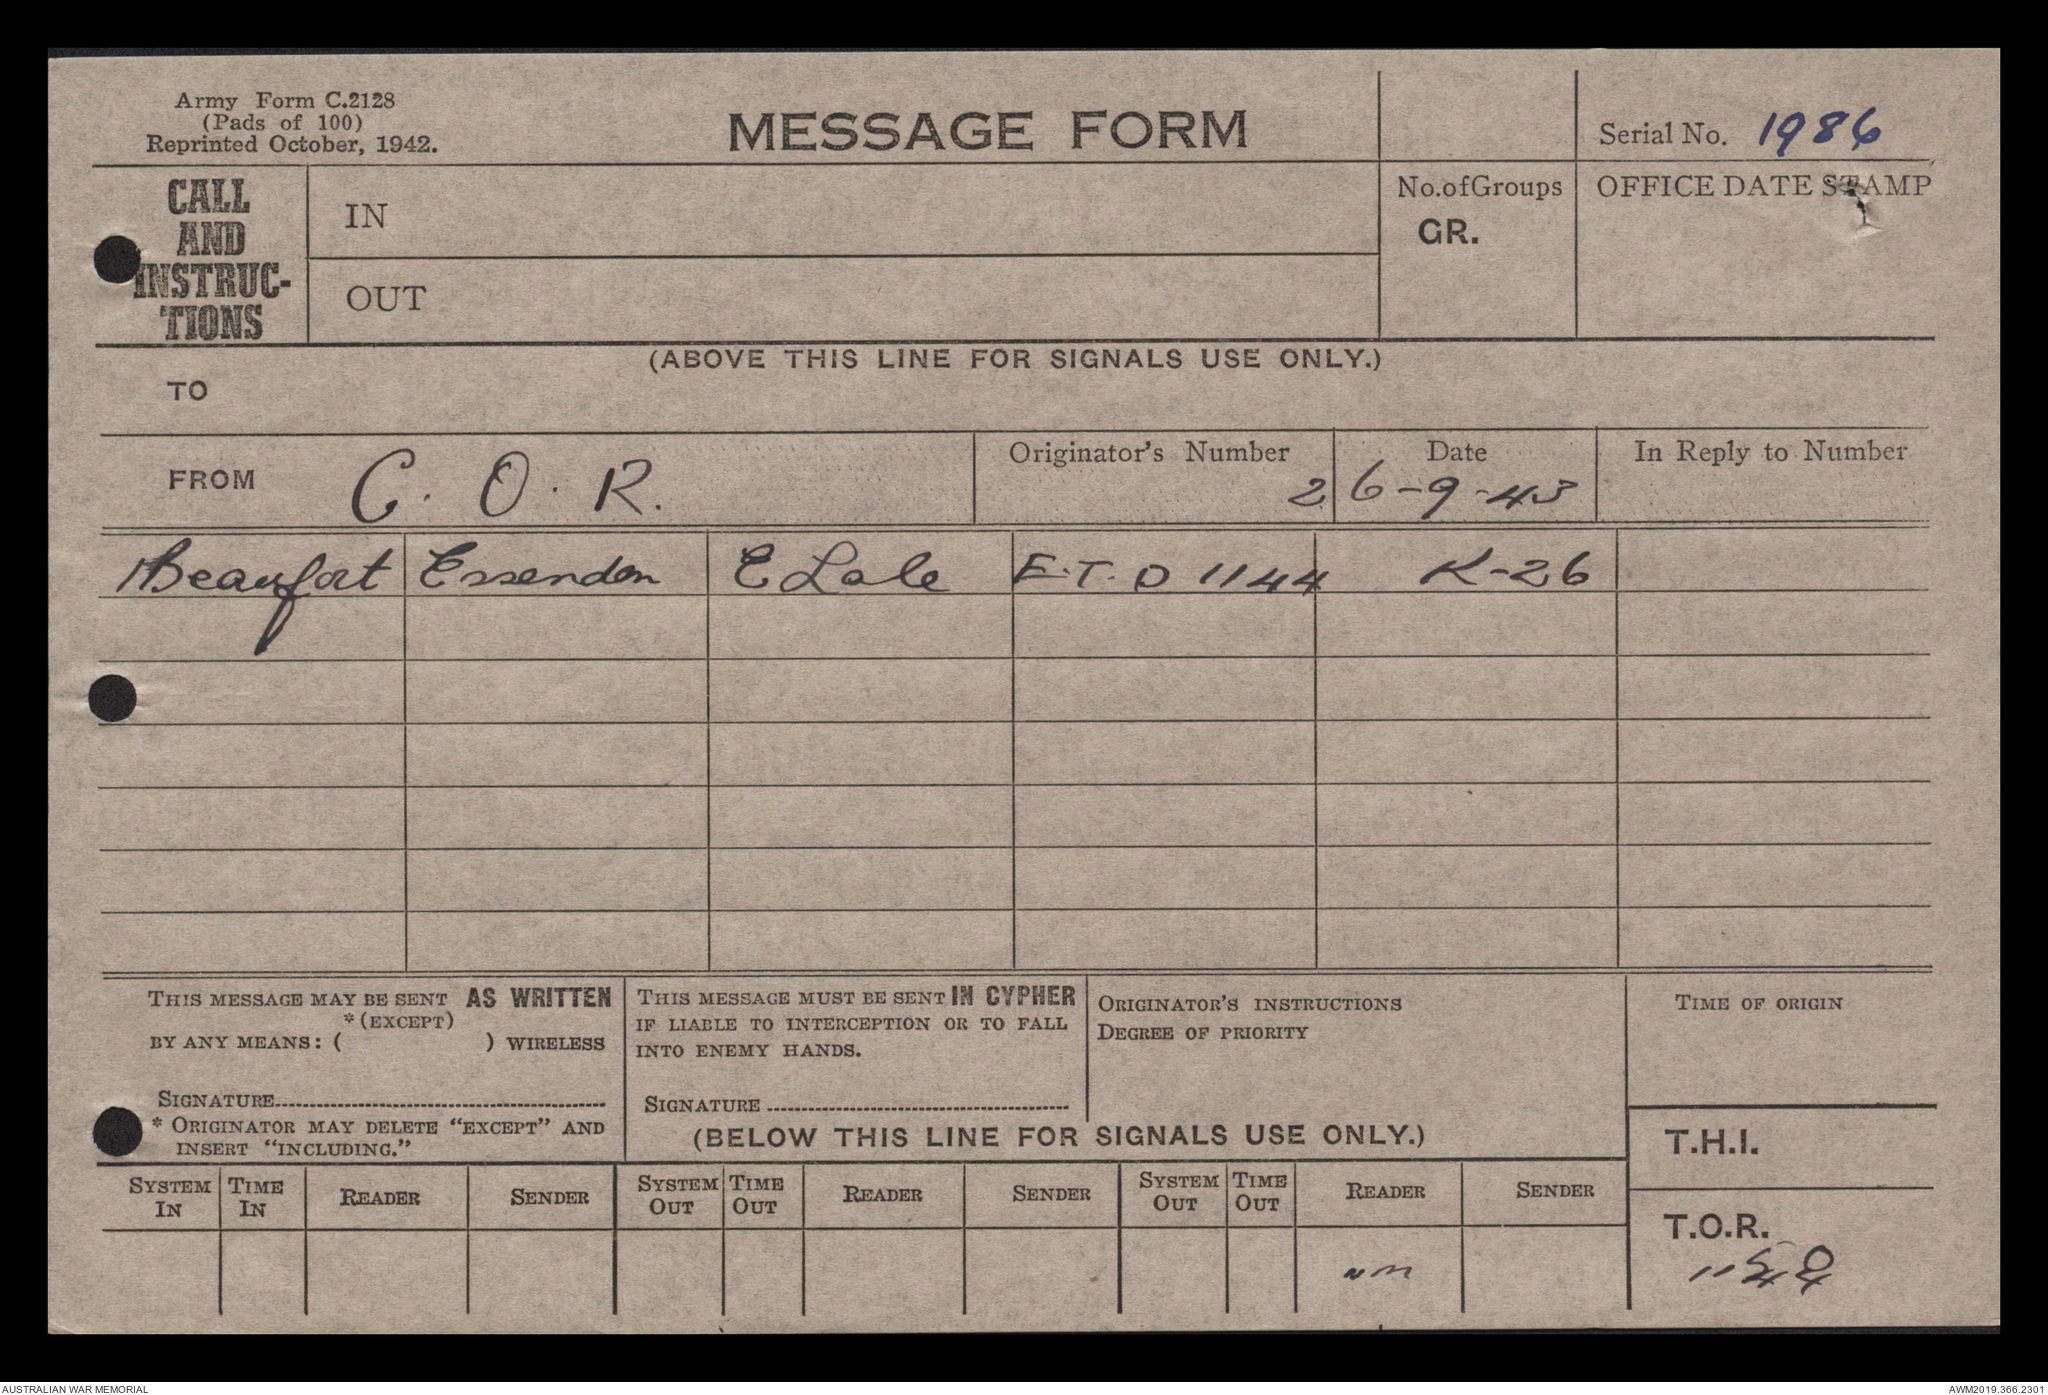 Army Form C.2128
(Pads of 100)
Reprinted October, 1942.
MESSAGE FORM
Serial No. 1986
CALL
AND
INSTRUC-
TIONS
IN
OUT
No. of Groups
GR.
OFFICE DATE STAMP
(ABOVE THIS LINE FOR SIGNALS USE ONLY.)
TO
FROM C. O. R.
Originator's Number
Date
26-9-43
In Reply to Number
Beaufort Essendon E Sale E.T.D 1144 K-26
THIS MESSAGE MAY BE SENT AS WRITTEN
*(EXCEPT)
BY ANY MEANS: ( ) WIRELESS
SIGNATURE
* ORIGINATOR MAY DELETE "EXCEPT" AND
INSERT "INCLUDING."
THIS MESSAGE MUST BE SENT IN CYPHER
IF LIABLE TO INTERCEPTION OR TO FALL
INTO ENEMY HANDS.
SIGNATURE
ORIGINATOR'S INSTRUCTIONS
DEGREE OF PRIORITY
TIME OF ORIGIN
(BELOW THIS LINE FOR SIGNALS USE ONLY.)
T.H.I.
SYSTEM IN
TIME IN
READER
SENDER
SYSTEM OUT
TIME OUT
READER
SENDER
SYSTEM OUT
TIME OUT
READER
SENDER
T.O.R.
AUSTRALIAN WAR MEMORIAL
AWM2019.366.2301